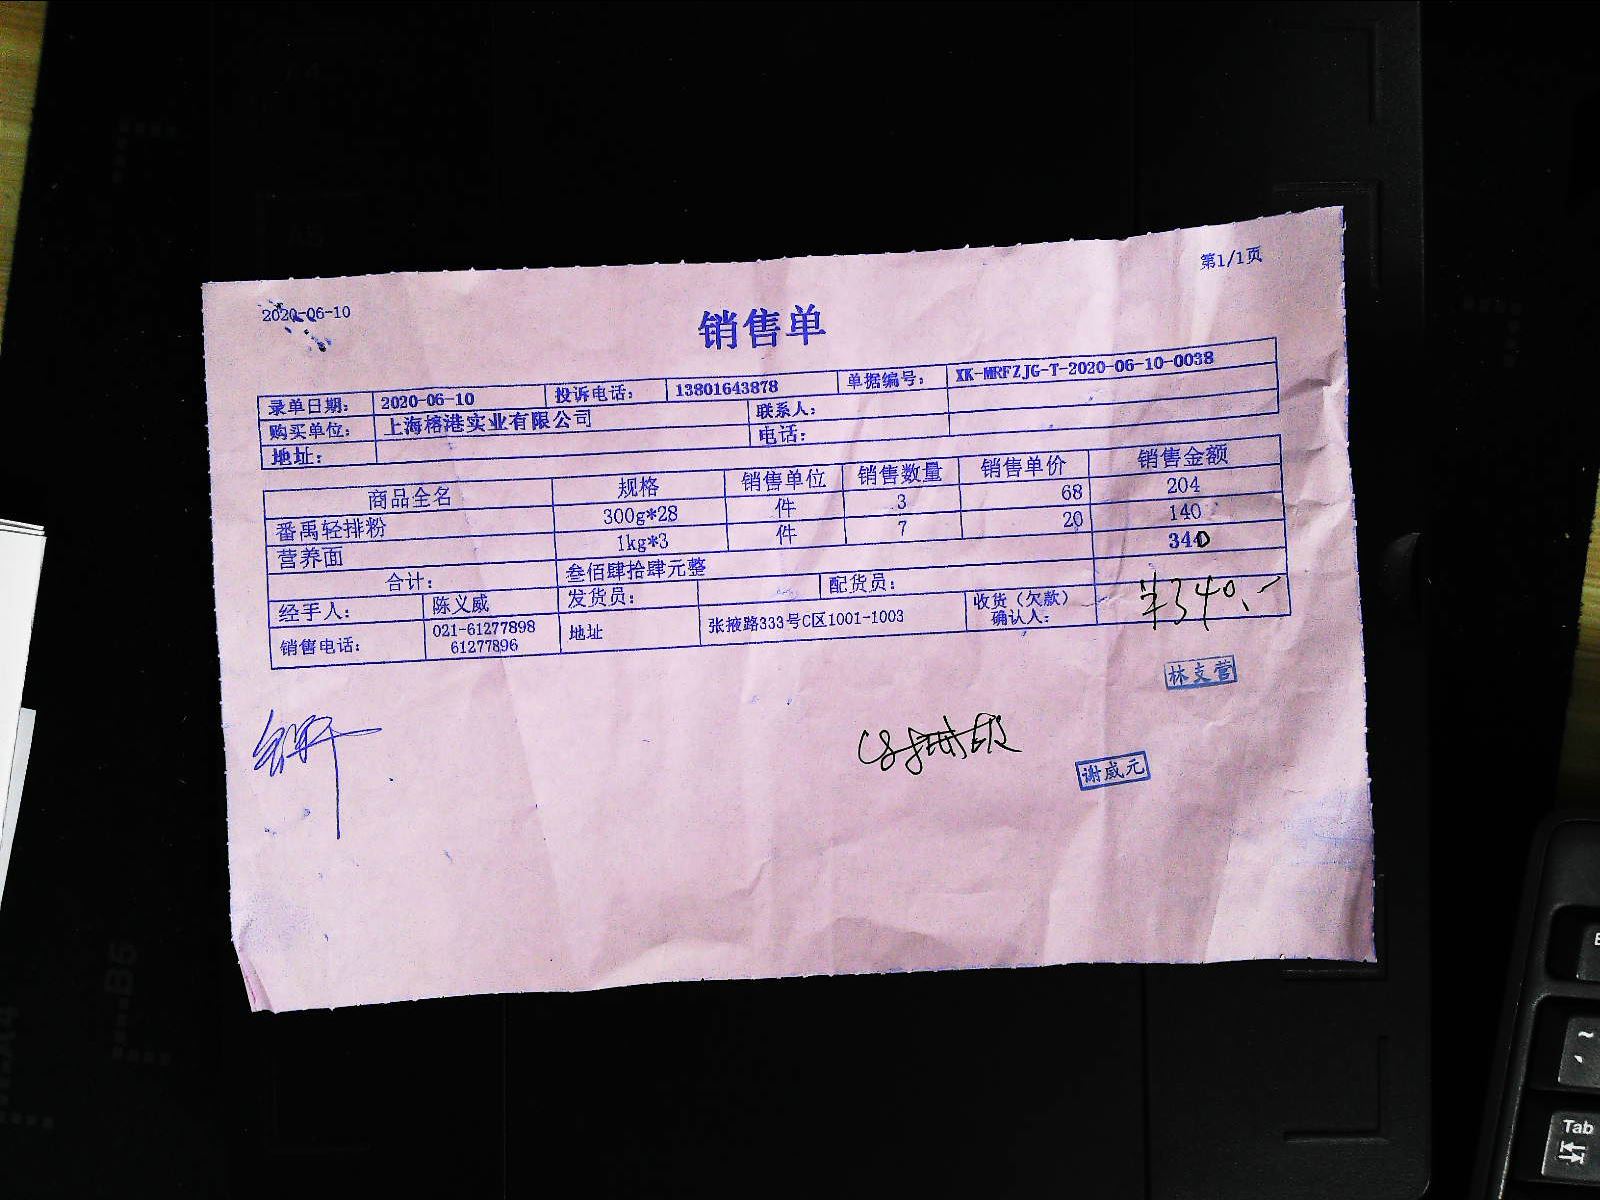 第1/1页
2020-06-10
销售单
录单日期: 2020-06-10 投诉电话: 13801643878 单据编号: XK-MRFZJG-T-2020-06-10-0038
购买单位: 上海榕港实业有限公司 联系人:
地址: 电话:
商品全名 规格 销售单位 销售数量 销售单价 销售金额
番禺轻排粉 300g*28 件 3 68 204
营养面 1kg*3 件 7 20 140
合计: 叁佰肆拾肆元整 340
经手人: 陈义威 发货员: 配货员:
销售电话: 021-61277898 61277896 地址 张掖路333号C区1001-1003 收货(欠款)确认人: ¥340.-
林支营
谢威元
Tab